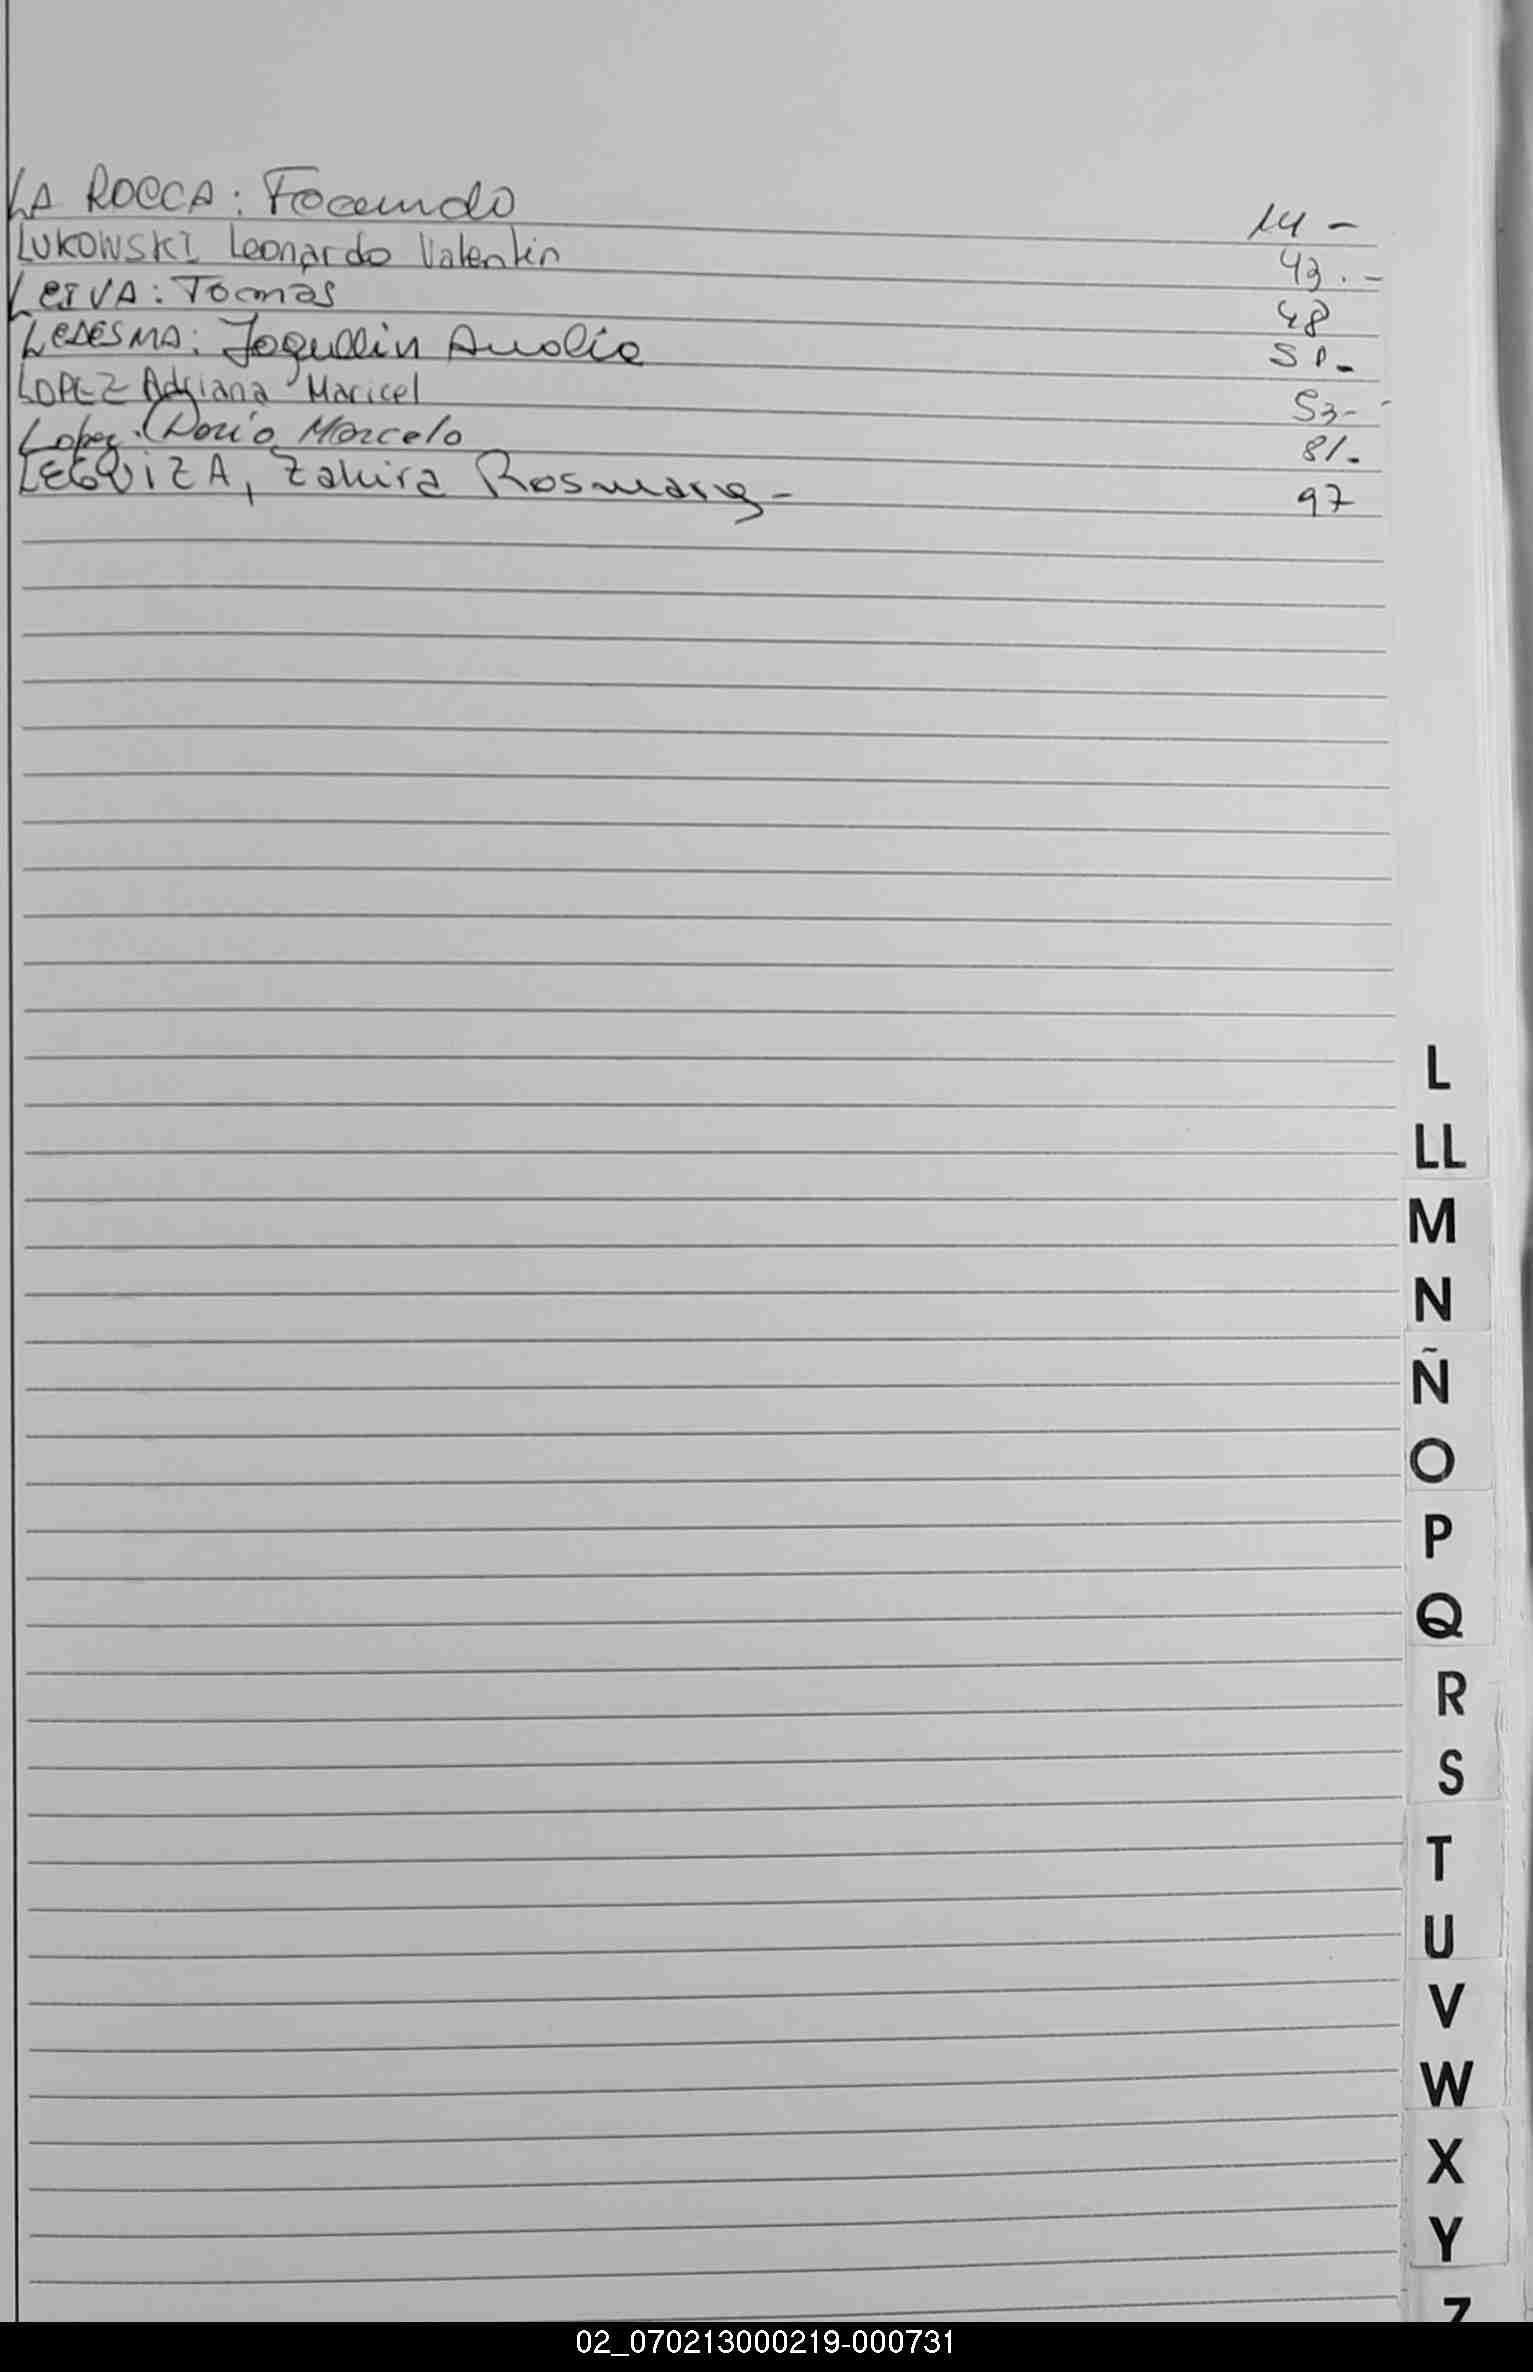 LA ROCCA: Facundo 14 -
LUKOWSKI Leonardo Valentin 43.-
LEIVA: Tomas 48
LEDESMA: Joquellin Analia 51.-
LOPEZ Adriana Maricel 53-
Lopez. Dario Marcelo 81.-
LEGUIZA, Zahira Rosmary - 97
L
LL
M
N
Ñ
O
P
Q
R
S
T
U
V
W
X
Y
Z
02_070213000219-000731